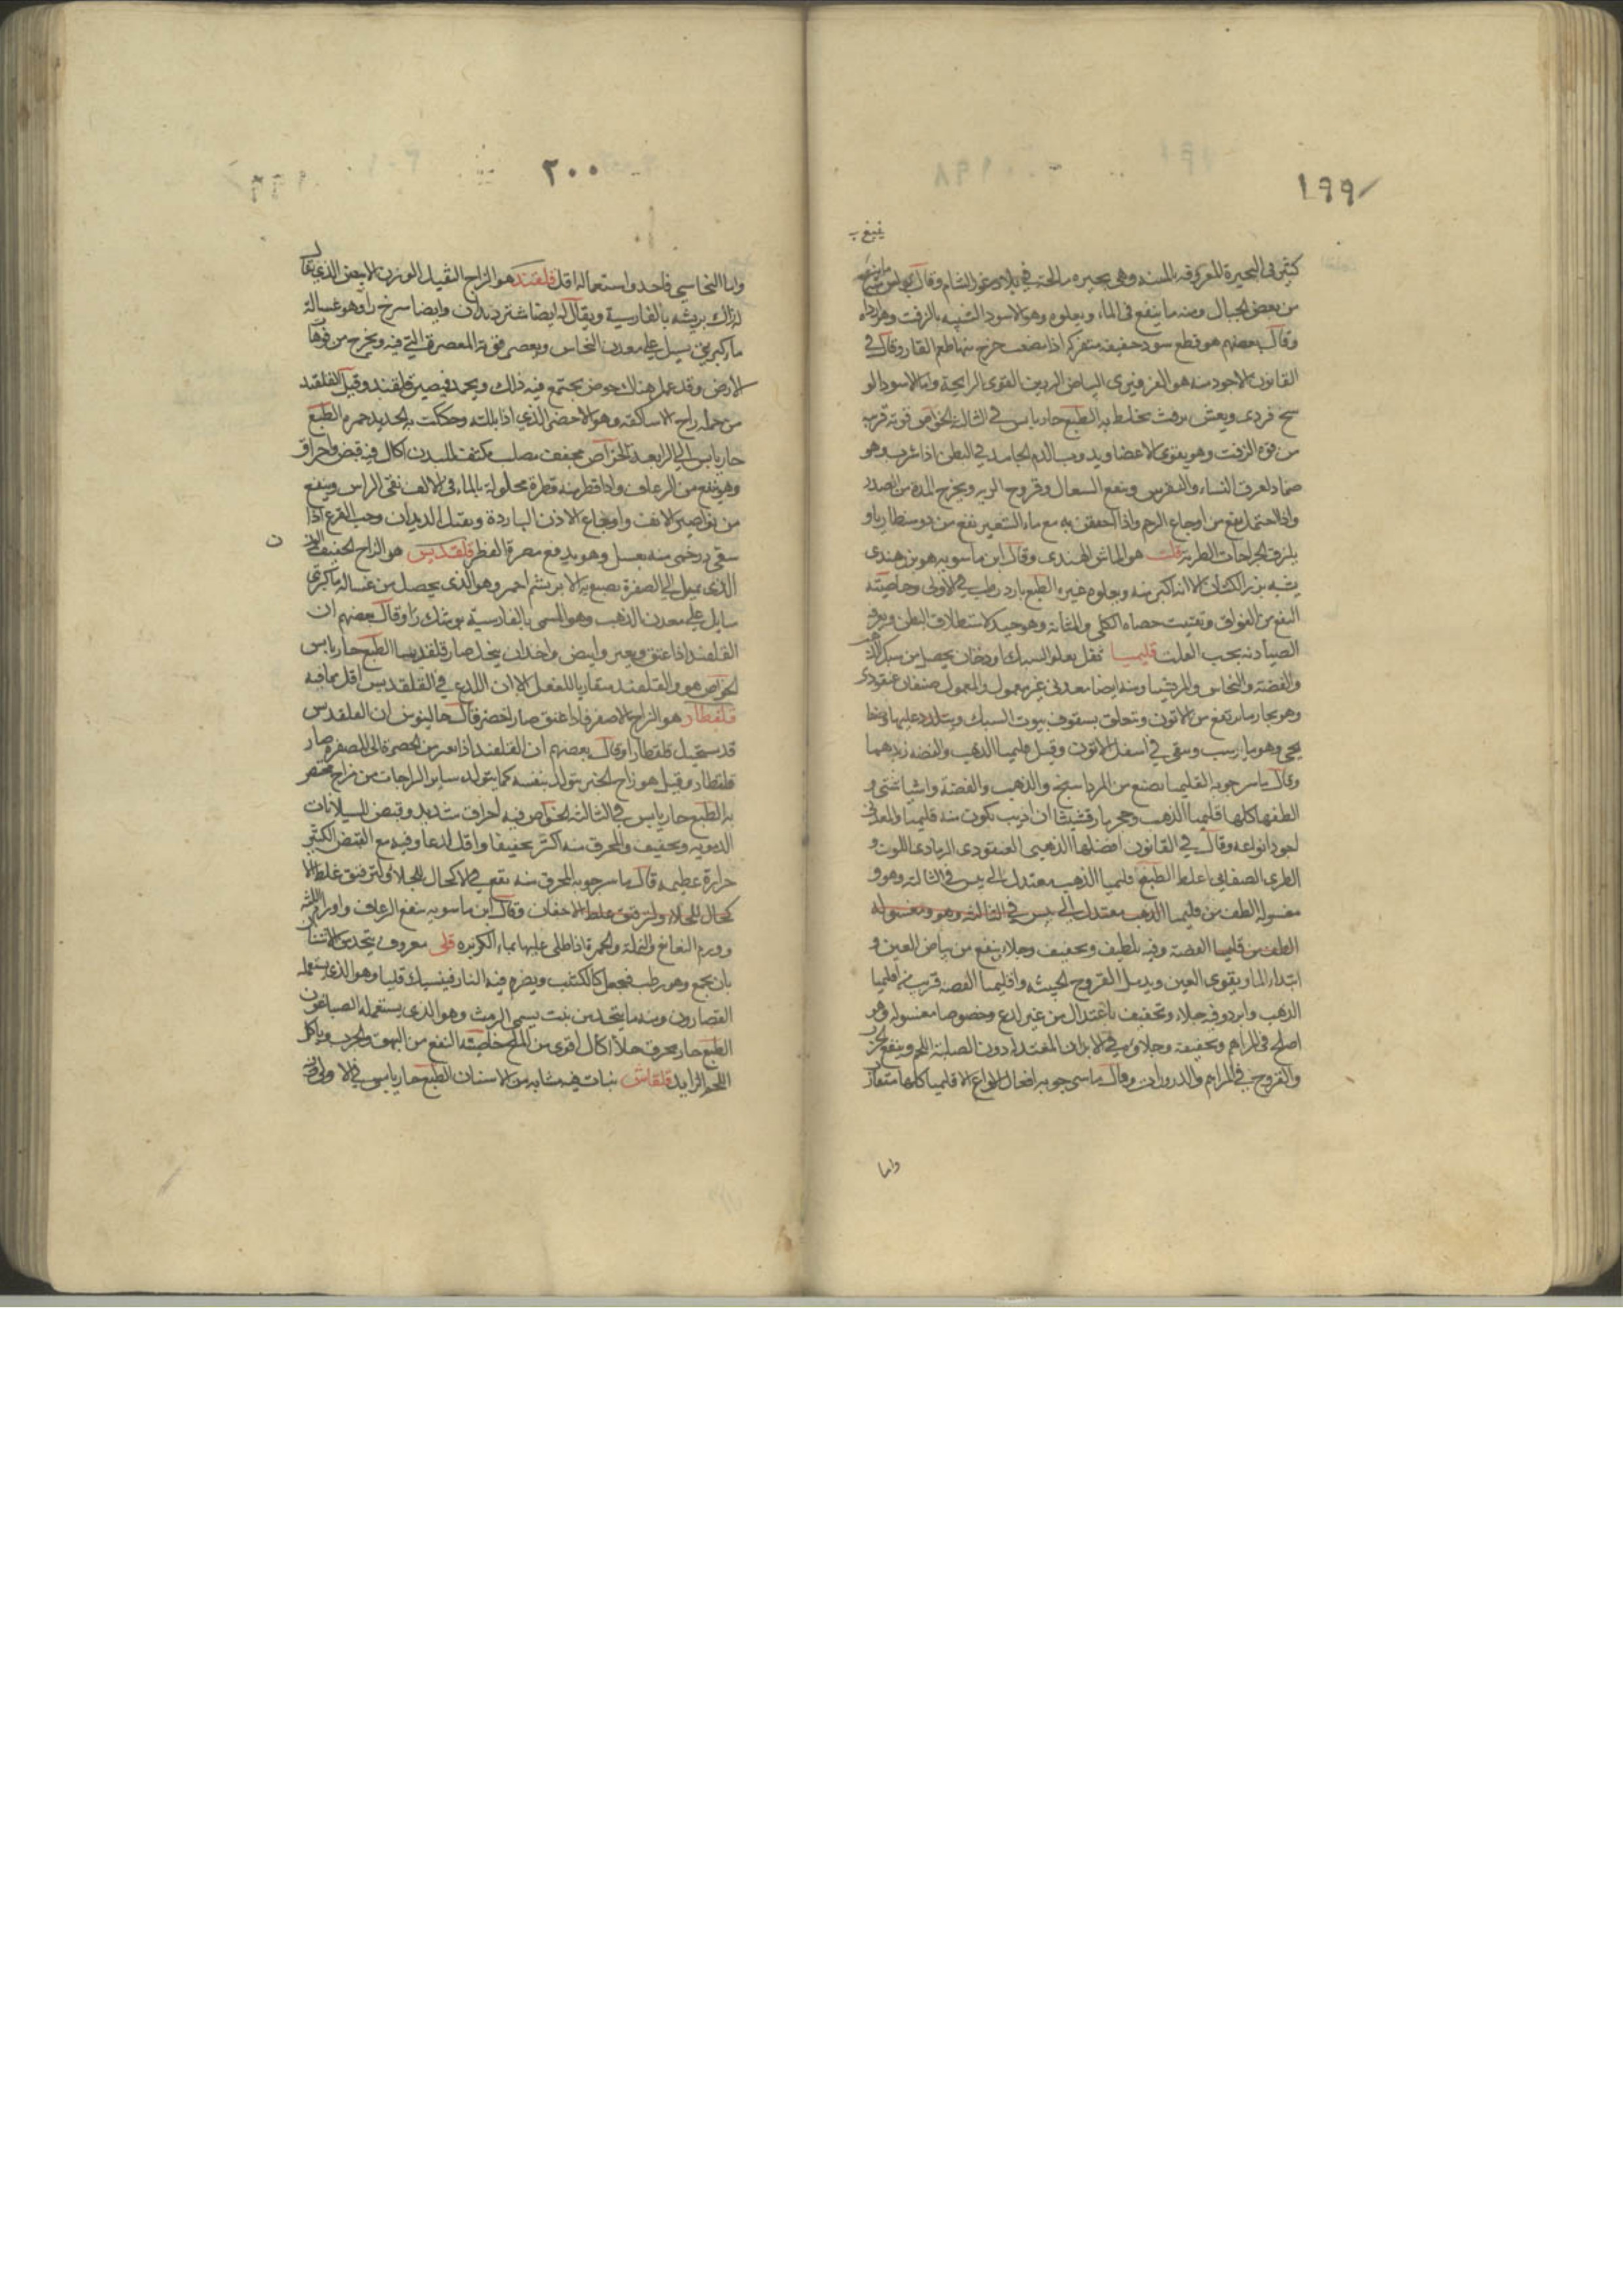 ١٩٩
كثير فى البحيرة المعروفة بالمنتنه وهى بحيره مالحة فى بلاد غور الشام وقال بولس
من بعض الجبال ومنه ما ينبع فى الماء ويعلوه وهو الاسود الشبيه بالزفت وهو
وقال بعضهم هو قطع سود خفيفه متفركه اذا مضغت خرج منها طعم القار وقال فى
القانون الاجود منه هو الفرفيرى البصاص الرزين القوى الرايحة واما الاسود
فردى ويغش بزفت يخلط به الطبع حار يابس فى الثالثه الخواص قوته قريبه
من قوه الزفت وهو يقوى الاعضا ويذوب الدم الجامد فى البطن اذا شرب وهو
ضماد لعرق النساء والنقرس وينفع السعال وقروح الريه ويخرج المدة من الصدر
واذا احتمل نفع من اوجاع الرحم واذا احتقن به مع ماء الشعير نفع من دوسنطاريا و
يلزق الجراحات الطريه قلت هو الماش الهندى وقال ابن ماسويه هو بزر هندى
يشبه بزر الكتان الا انه اكبر منه ويجلوه غبره الطبع بارد رطب فى الاولى وخاصيته
النفع من الفواق وتفتيت حصاه الكلى والمثانه وهو جيد لاستطلاق البطن ويعرفه
الصيادنه بحب القلت قليميا ثفل يعلو السبك او دخان يحصل من سبك الذهب
والفضة والنحاس والمرقشيا ومنه ايضا معدنى غير معمول والمعمول صنفان عنقودى
وهو بخار ما يرتفع من الاتون ويتعلق بسقوف بيوت السبك ويتلبد عليها وصفا
يحى وهو ما يرسب ويبقى فى اسفل الاتون وقيل قليميا الذهب والفضه زبدهما
وقال ياسرجويه القليميا يصنع من المرداسنج والذهب والفضة واشيا شتى و
الطفها كلها قليميا الذهب وحجر مارقشيثا ان اذيب تكون منه قليميا والمعدنى
اجود انواعه وقال فى القانون افضلها الذهبى العنقودى الرمادى اللون و
الطرى الصفايحى اغلظ الطبع قليميا الذهب معتدل الى يبس فى الثالثه وهو و
مغسوله الطف من قليميا الذهب معتدل الى يبس فى الثالثه وهو ومغسوله
الطف من قليميا الفضة وفيه تلطيف وتجفيف وجلاء ينفع من بياض العين و
ابتداء الما ويقوى العين ويدمل القروح الخبيثه واقليميا الفضه قريب من اقليميا
الذهب وابرد وفيه جلاء وتجفيف باعتدال من غير لذع وخصوصا مغسوله وهو
اصلح فى المراهم وتجفيفه وجلاؤه فى الابدان المعتدله دون الصلبة اللحم وينفع
والقروح فى المراهم والذرورات وقال ماسرجويه افعال انواع الاقليميا كلها متقاربه
واما
٢٠٠
واما النحاسى فاحد واستعماله اقل قلقند هو الزاج الثقيل الوزن الاخضر الذى يقال
له زاك تريشه بالفارسية ويقال له ايضا شتر دندان وايضا سرخ را وهو غسالة
ما كبريتى يسيل على معدن النحاس ويعصر فى المعصرة التى فيه ويخرج من فوهات
الارض وقد عمل هناك حوض يجتمع فيه ذلك ويجمد فيصير قلقند وقيل القلقند
من جمله زاج الاساكفه وهو الاخضر الذى اذا بللته وحككت به الحديد حمره الطبع
حار يابس الى الرابعه الخواص مجفف مصلب مكثف للبدن اكال فيه قبض واحراق
وهو ينفع من الرعاف واذا قطر منه قطرة محلولة بالماء فى الانف نقى الراس وينفع
من نواصير الانف واوجاع الاذن الباردة ويقتل الديدان وحب القرع اذا
سقى درخمى منه بعسل وهو يدفع مضرة الفطر قلقديس هو الزاج الخفيف
الذى يميل الى الصفرة يصبغ به الابريشم احمر وهو الذى يحصل من غسالة ما كبريتى
سايل على معدن الذهب وهو المسمى بالفارسية وقال بعضهم ان
القلقند اذا عتق وتغير وابيض واخذ ان ينحل صار قلقديسا الطبع حار يابس
الخواص هو والقلقند متقاربا الفعل الا ان اللذع فى القلقديس اقل مما فيه
قلقطار هو الزاج الاصفر فاذا عتق صار اخضر قال جالينوس ان القلقديس
قد يستحيل قلقطارا وقال بعضهم ان القلقند اذا تغير من الخضرة الى الصفرة صار
قلقطار وقيل هو زاج يتولد بنفسه كما يتولد ساير الزاجات من زاج
به الطبع حار يابس فى الثالثه الخواص فيه احراق شديد وقبض للسيلانات
الدمويه وتجفيف والمحرق منه اكثر تجفيفا واقل لذعا وفيه مع القبض الكثير
حرارة عظيمه قال ماسرجويه المحرق منه يقع فى الاكحال للجلاء ولترقيق غلظ الا
كحال للجلاء ولترقيق غلظ الاجفان وقال ابن ماسويه ينفع الرعاف واورام اللثه
وورم النغانغ والنملة والحمرة اذا طلى عليها بماء الكزبره قلى معروف يتخذ من الاشنان
بان يجمع وهو رطب فيجعل كالكثيب ويضرم فيه النار فينسبك قليا وهو الذى يستعمله
القصارون ومنه ما يتخذ من نبت يسمى الرمث وهو الذى يستعمله الصباغون
الطبع حار محرق جلاء اكال اقوى من الملح خاصيته النفع من البهق والجرب وياكل
اللحم الزايد قلقاس نبات فيه مشابه من الاسنان الطبع حار يابس فى الاولى